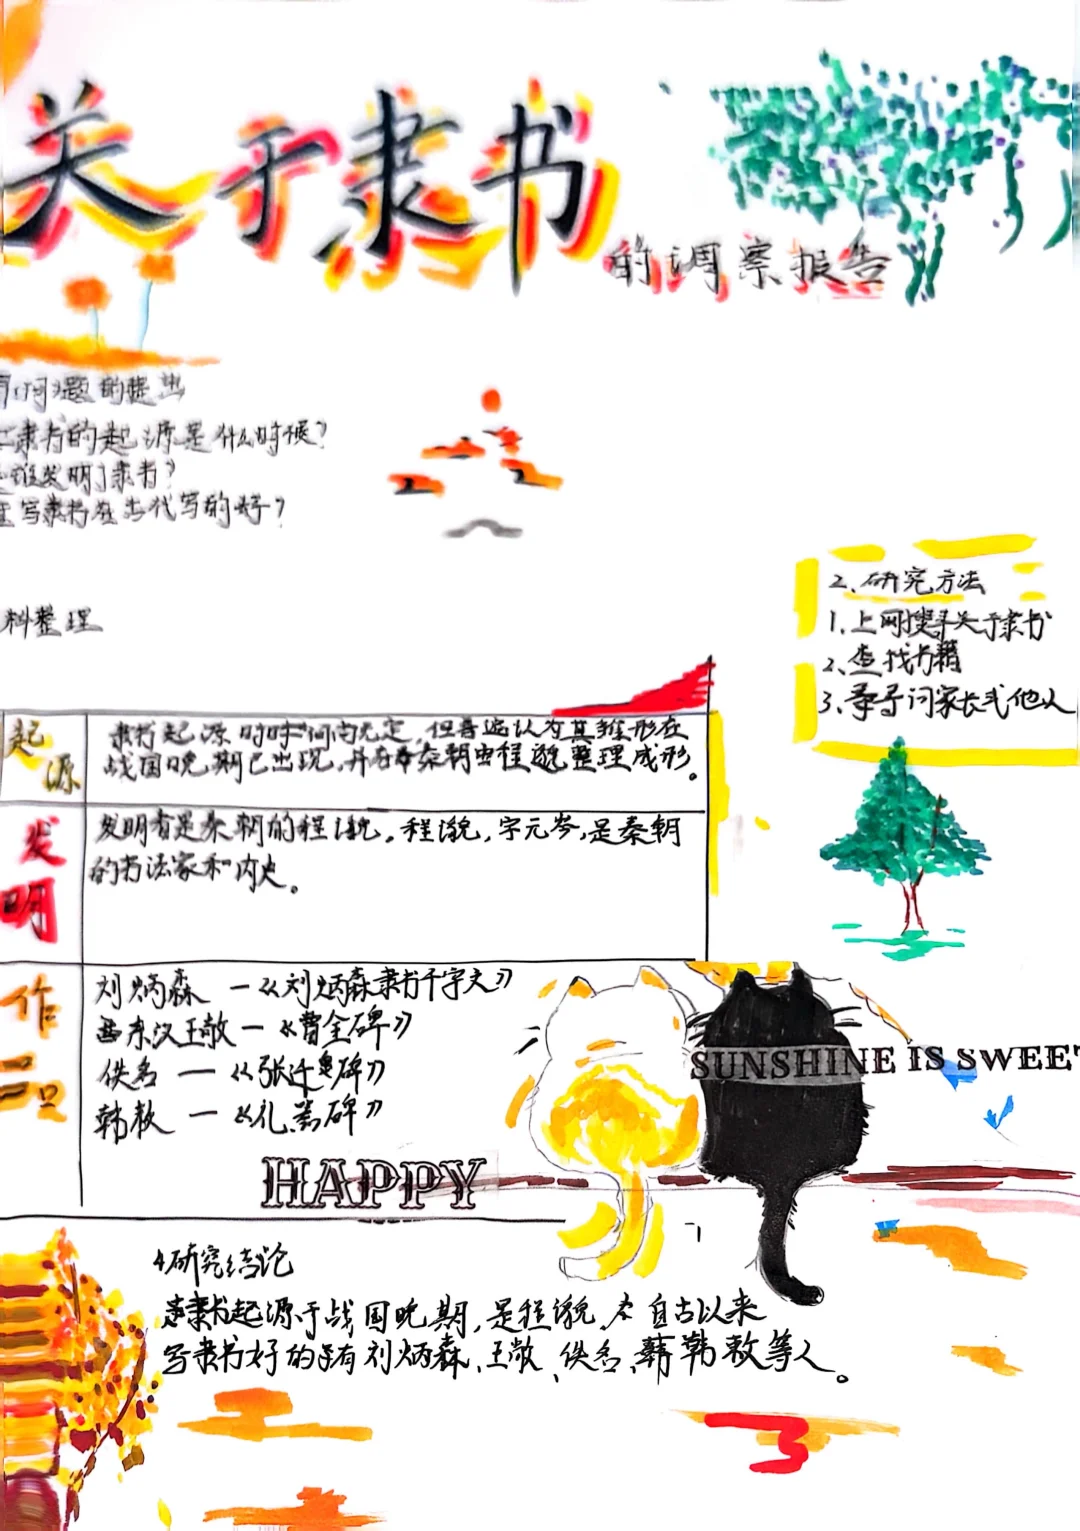 关于隶书
的调察报告
问题的提出
隶书的起源是什么时候?
谁发明了隶书?
写隶书在古代写的好?
料整理
2、研究方法
1、上网搜寻关于隶书
2、查找书籍
3、寻问家长或他人
起源
隶书起源的时间尚无定,但普遍认为其雏形在
战国晚期已出现,并在秦朝由程邈整理成形。
发明
发明者是秦朝的程邈。程邈,字元岑,是秦朝
的书法家和内史。
作品
刘炳森 —《刘炳森隶书千字文》
东汉王敞—《曹全碑》
佚名 —《张迁碑》
韩敕 —《礼器碑》
SUNSHINE IS SWEET
HAPPY
4研究结论
隶书起源于战国晚期,是程邈,自古以来
写隶书好的有刘炳森、王敞、佚名、韩敕等人。